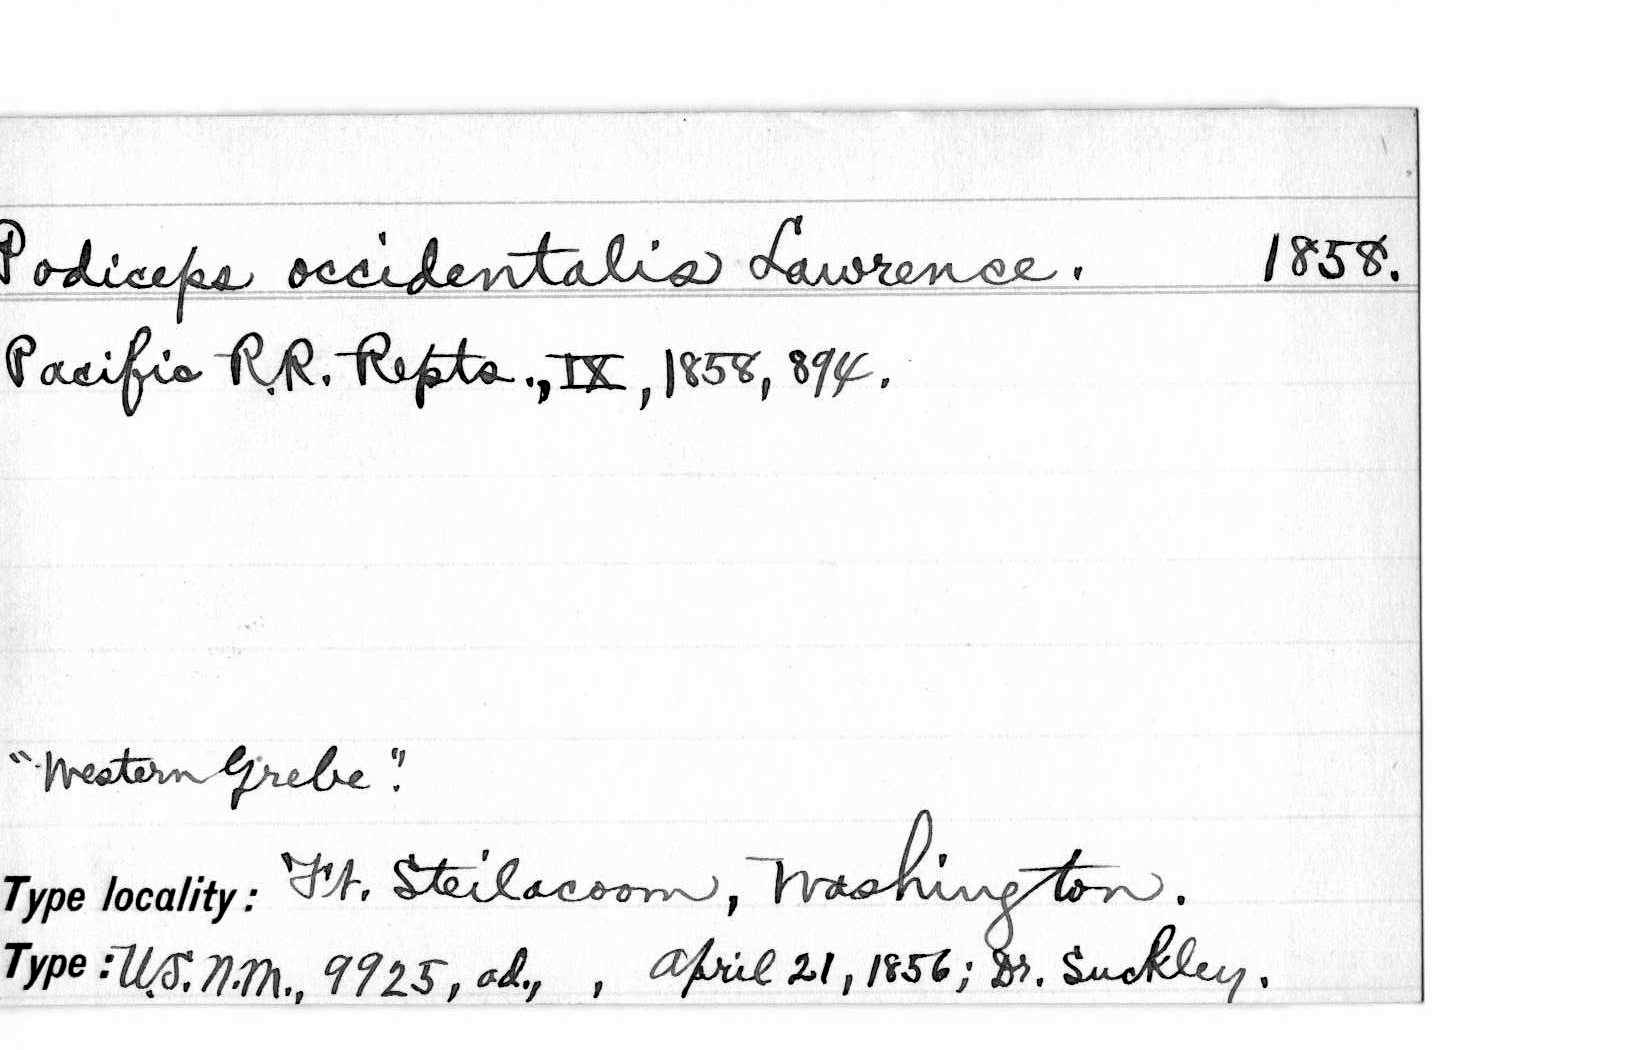 Podiceps occidentalis Lawrence. 1858.
Pacific R.R. Repts., IX, 1858, 894.
"Western Grebe".
Type locality: Ft. Steilacoom, Washington.
Type: U.S.N.M., 9925, ad., , April 21, 1856; Dr. Suckley.